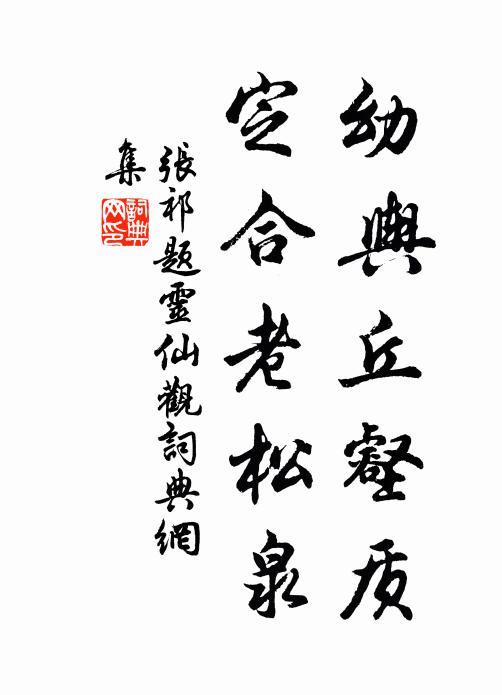 幼輿丘壑质
定合老松泉
張祁題靈仙觀詞典網
集
詞典
网印